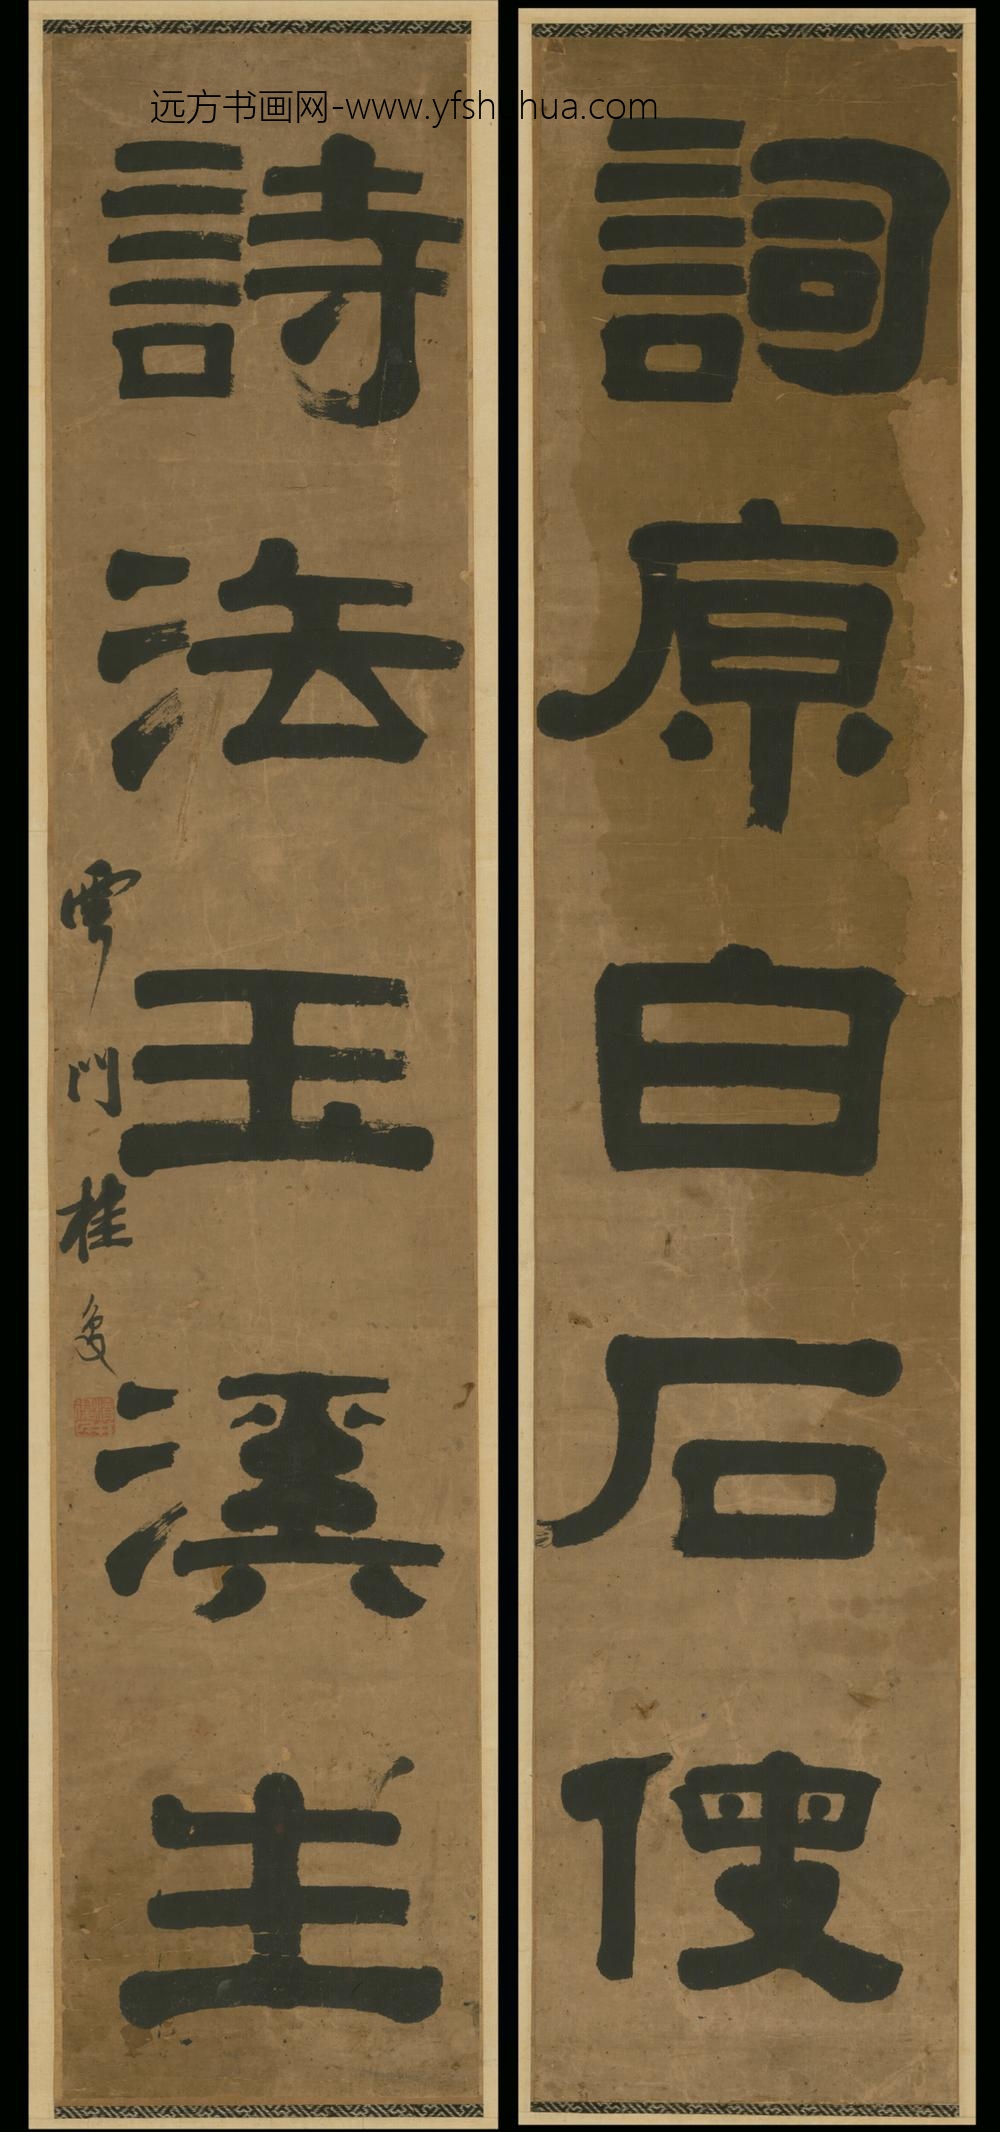 远方书画网-www.yfshuhua.com
詞原白石傁
詩法玉溪生
雲門桂馥